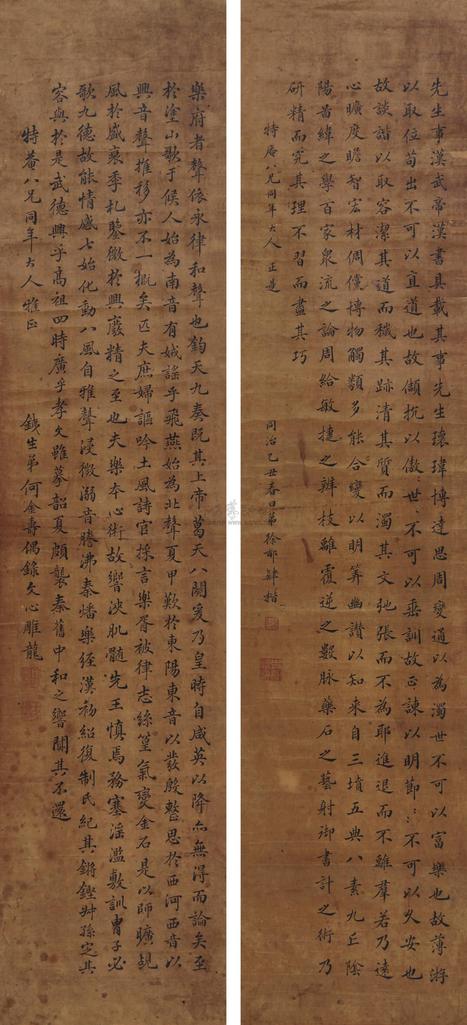 先生事漢武帝漢書具載其事先生瓌瑋博達思周變通以為濁世不可以富樂也故薄游
以取位苟出不可以直道也故傾抗以傲世〻不可以垂訓故正諫以明節〻不可以久安也
故談諧以取容潔其道而穢其跡清其質而濁其文弛張而不為耶進退而不離羣若乃遠
心曠度贍智宏材倜儻博物觸類多能合變以明筭幽讃以知來自三墳五典八素九丘陰
陽啚緯之學百家衆流之論周給敏捷之辨枝離覆逆之數脉藥石之藝射御書計之術乃
研精而究其理不習而盡其巧
特庵八兄同年大人正是
同治乙丑春日弟徐郙肄楷
樂府者聲依永律和聲也鈞天九奏既其上帝葛天八闋爰乃皇時自咸英以降亦無得而論矣至
於塗山歌于候人始為南音有娀謠乎飛燕始為北聲夏甲歎於東陽東音以發殷整思於西河西音以
興音聲推移亦不一概矣匹夫庶婦謳吟土風詩官採言樂胥被律志絲篁氣變金石是以師曠覘
風於盛衰季札鑒微於興廢精之至也夫樂本心術故響浹肌髓先王慎焉務塞淫濫敷訓胄子必
歌九德故能情感七始化動八風自雅聲浸微溺音騰沸秦燔樂經漢初紹復制氏紀其鏘鏗叔孫定其
容與於是武德興乎高祖四時廣乎孝文雖摹韶夏頗襲秦舊中和之響闃其不還
特庵八兄同年大人雅正
銕生弟何金壽偶錄文心雕龍